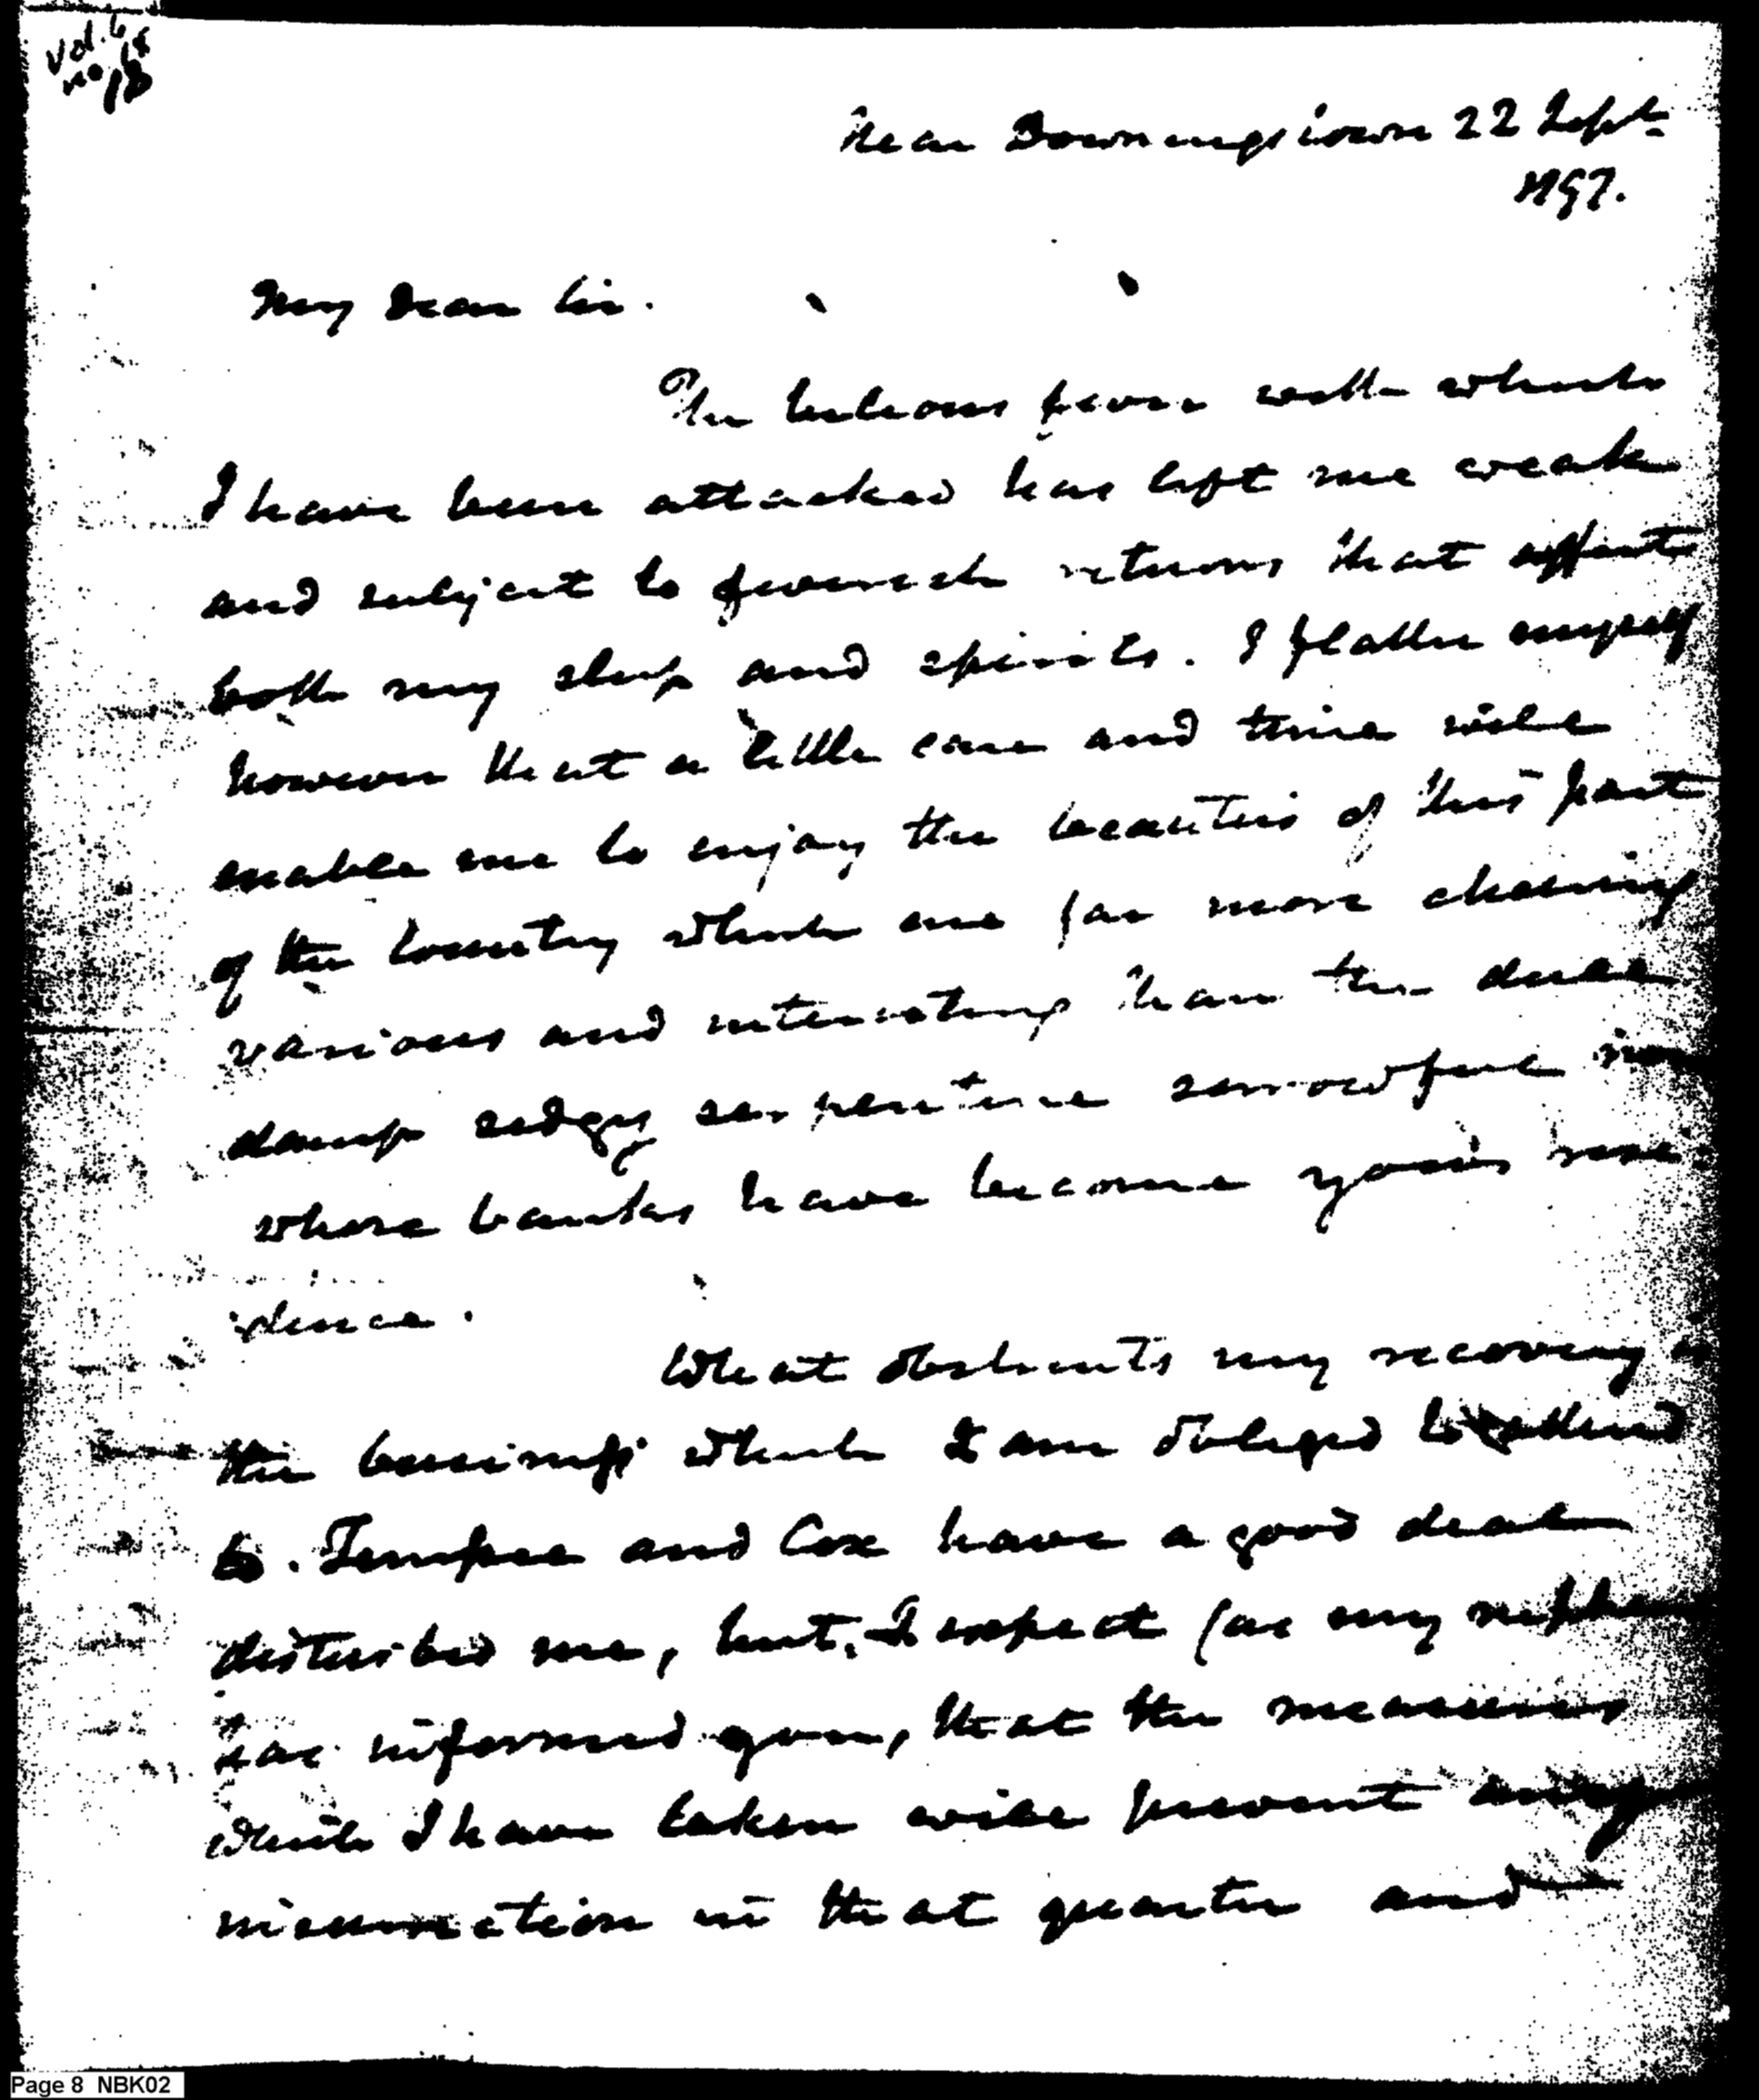 Vol. 6
No 18
Near Downingstown 22 Sept
1797.
My Dear Sir.
The bilious fever with which
I have been attacked has left me weak
and subject to feverish returns that affect
both my sleep and spirits. I flatter myself
however that a little care and time will
enable me to enjoy the beauties of this part
of the Country which are far more chearing
various and interesting than the dull
damp sedgy serpentine sorrowful
whose banks have become your resi
dence.
What obstructs my recovery is
the business which I am obliged to attend
to. Temple and Cox have a good deal
disturbed me, but, I expect (as my nephew
has informed you, that the measures
which I have taken will prevent any
insurrection in that quarter and
Page 8 NBK02